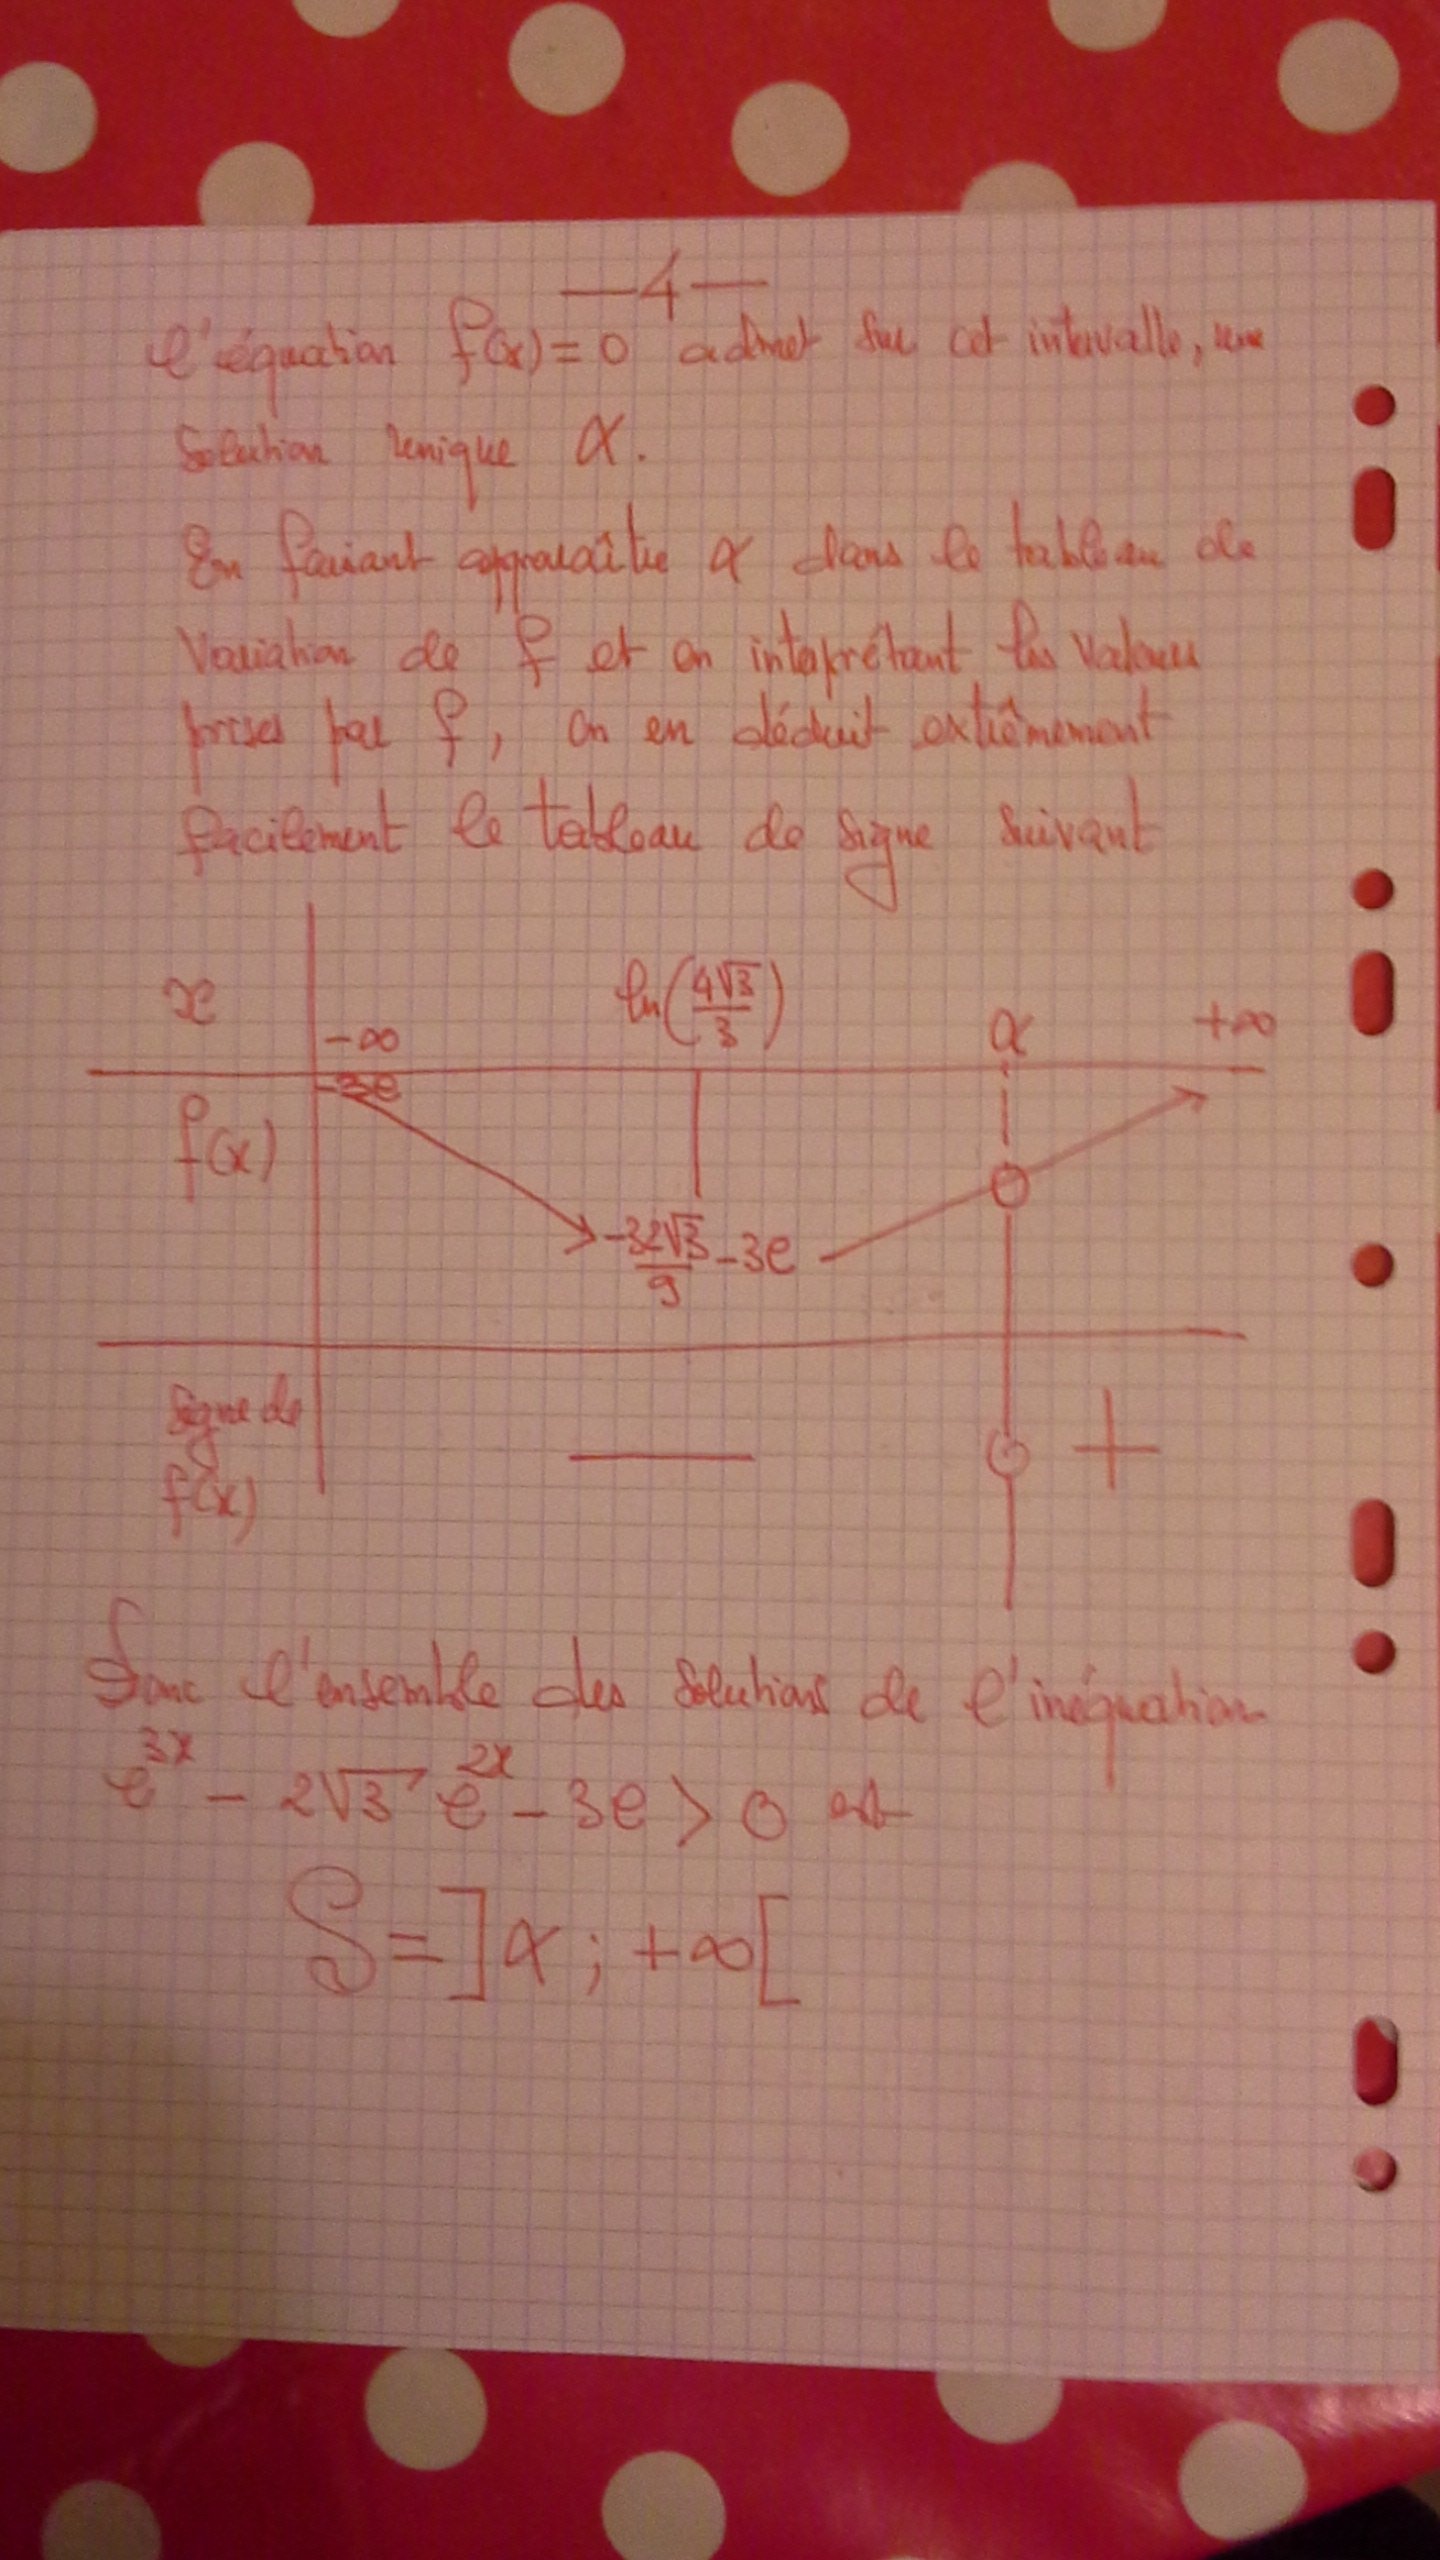 —4—
l'équation f(x)=0 admet sur cet intervalle, une
solution unique α.
En faisant apparaître α dans le tableau de
variation de f et en interprétant les valeurs
prises par f, on en déduit extrêmement
facilement le tableau de signe suivant
x -∞ ln(4√3/3) α +∞
f(x) -3e -32√3/9 -3e 0
signe de f(x) — 0 +
Donc l'ensemble des solutions de l'inéquation
e^{3x} - 2√3 e^{2x} - 3e > 0 est
S = ]α ; +∞[